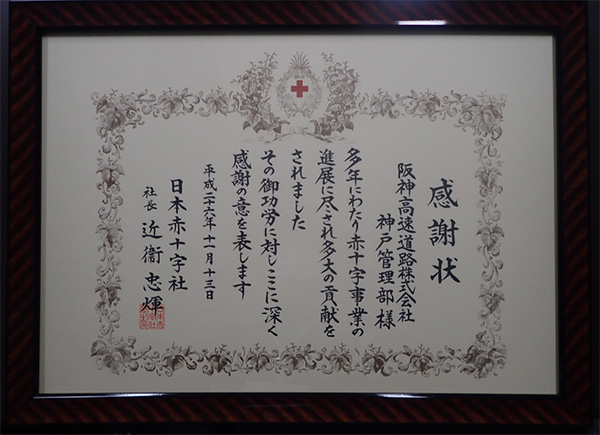 感謝状
阪神高速道路株式会社
神戸管理部様
多年にわたり赤十字事業の
進展に尽され多大の貢献を
されました
その御功労に対しここに深く
感謝の意を表します
平成二十六年十一月十三日
日本赤十字社
社長 近衞忠煇